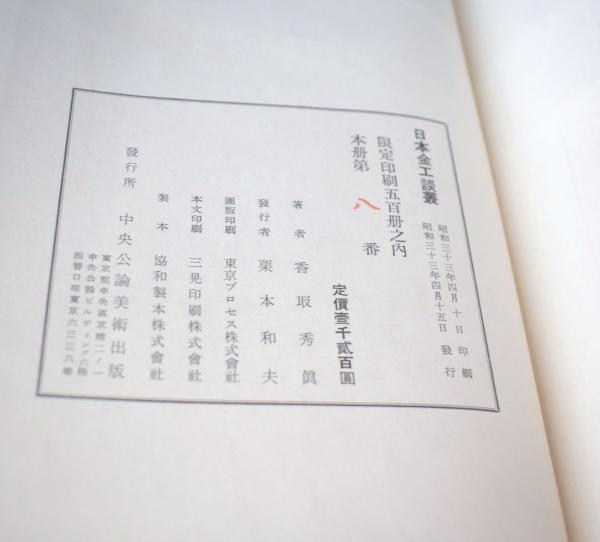 日本金工談叢
昭和三十三年四月十日印刷
昭和三十三年四月十五日發行
限定印刷五百册之內
本册第八番
定價壹千貳百圓
著者 香取秀眞
發行者 栗本和夫
圖版印刷 東京プロセス株式會社
本文印刷 三晃印刷株式會社
製本 協和製本株式會社
發行所 中央公論美術出版
東京都中央區京橋二ノ一
中央公論ビルディング六階
振替口座東京六三三六番